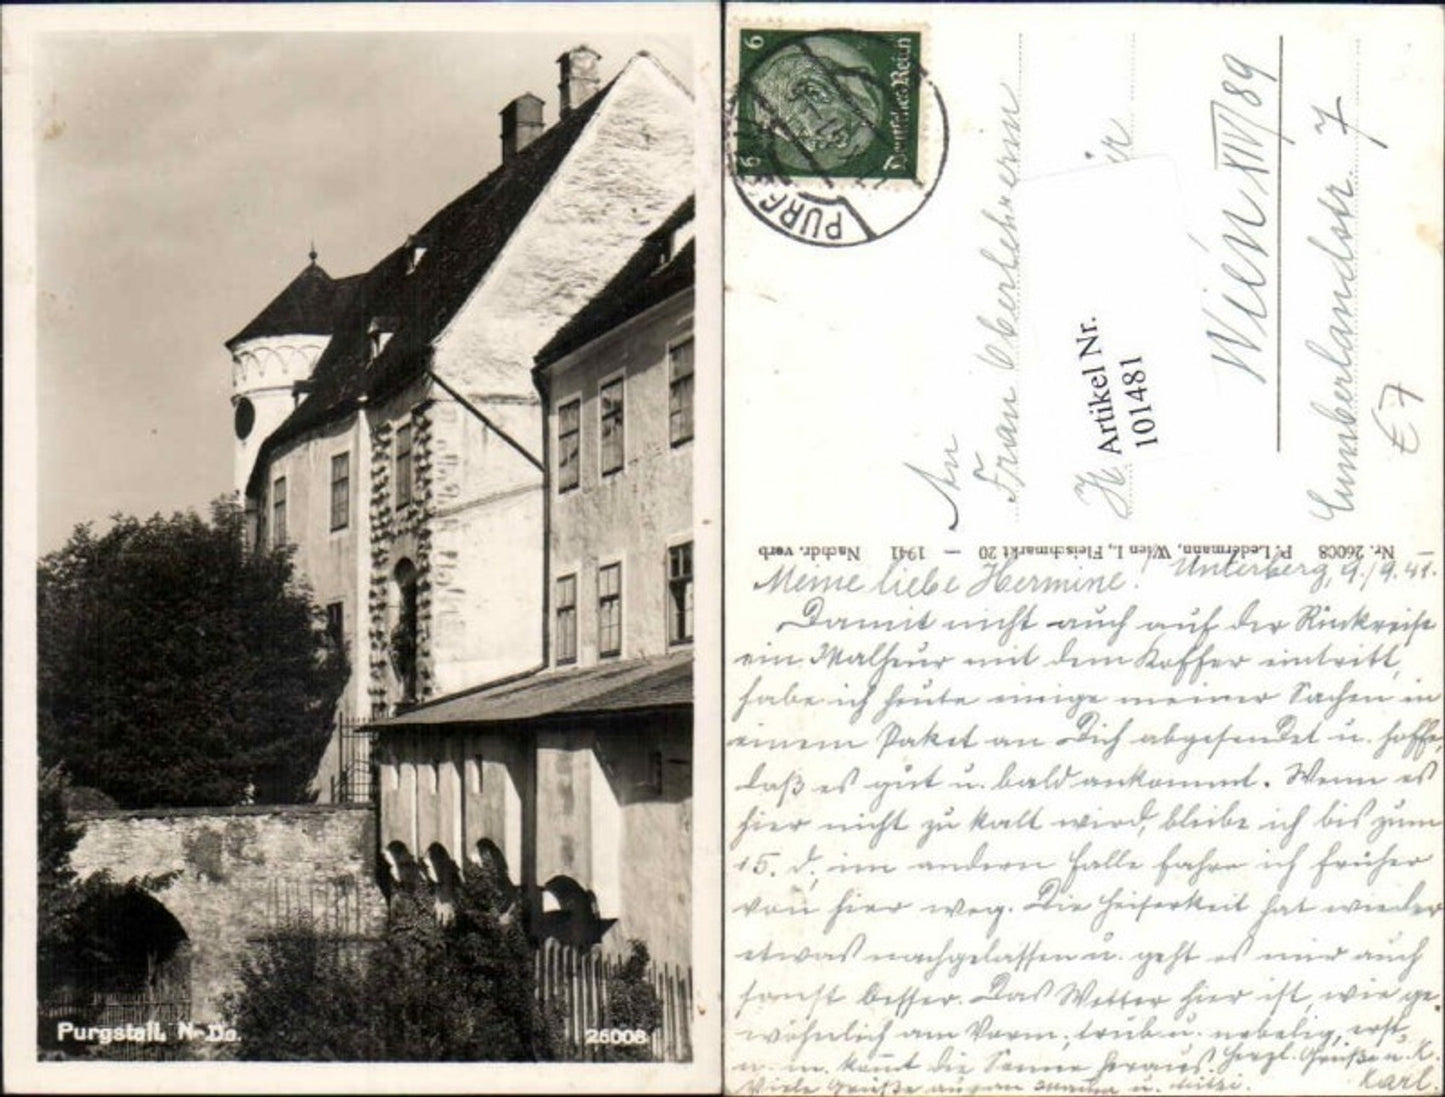 Purgstall, N-Do.
26008
6
6
Deutsches Reich
PURG
An
Frau Oberlehrerin
H
Artikel Nr.
101481
Wien XIV/89
Cumberlandstr 7
Nr. 26008 P. Ledermann, Wien I., Fleischmarkt 20 — 1941 Nachdr. verb
Meine liebe Hermine! Unterberg, 9./9. 41.
Damit nicht auch auf der Rückreise
ein Malheur mit dem Koffer eintritt,
habe ich heute einige meiner Sachen in
einem Paket an Dich abgesendet u. hoffe,
daß es gut u. bald ankommt. Wenn es
hier nicht zu kalt wird, bleibe ich bis zum
15. d., im andern Falle fahre ich früher
von hier weg. Die Heiserkeit hat wieder
etwas nachgelassen u. geht es mir auch
sonst besser. Das Wetter hier ist, wie ge
wöhnlich am Vorm. trüb u. nebelig, erst
n. m. kommt die Sonne heraus. Herzl. Grüße u. K.
Viele Grüße auch an u. Mitzi. Karl.